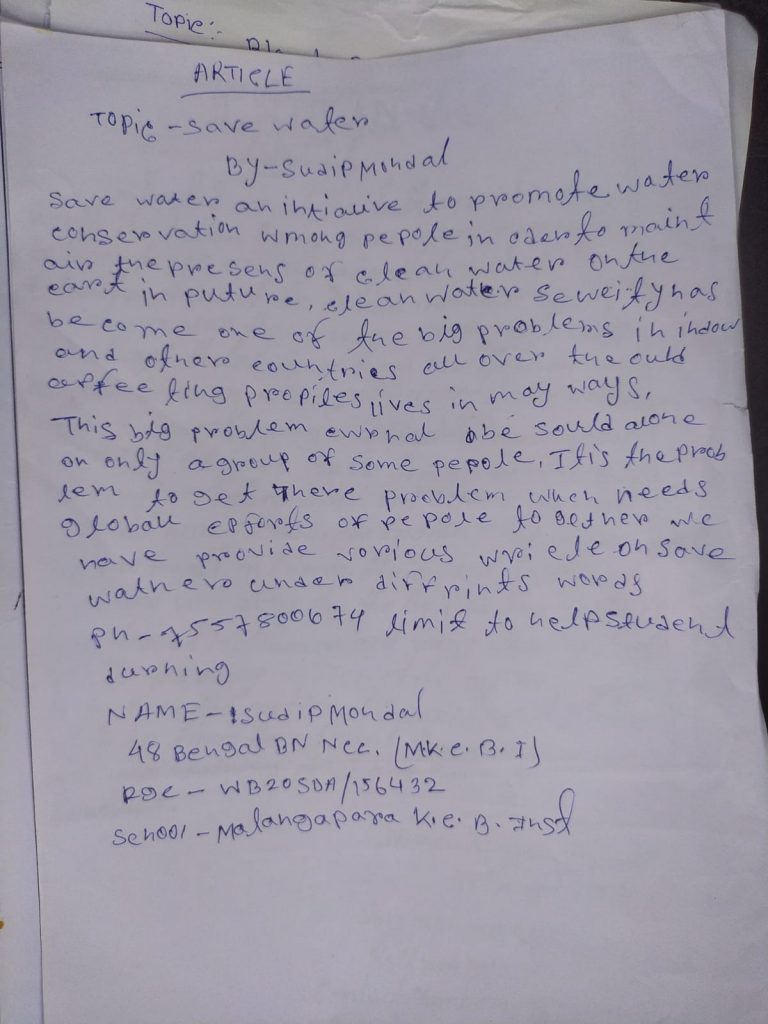 Topic:-
ARTICLE
Topic - Save water
BY - Sudip Mondal
Save water an intiative to promote water
conservation wmong pepole in oder to maint
ain the presens of clean water on the
eart in puture, clean water seweity has
become one of the big problems in indow
and other countries all over the
ting propiles lives in may ways,
This big problem be sould alone
on only a group of some pepole, It is the prob
lem to get there proeblem when needs
globall epforts of pepole to gether we
have provide vorious on save
wathero under diffrints words
limit to help student
durning
NAME - Sudip Mondal
48 Bengal BN Ncc. (M.K.C.B.I)
RGC - WB20SDA/156432
School - Malangapara K.C.B. Inst